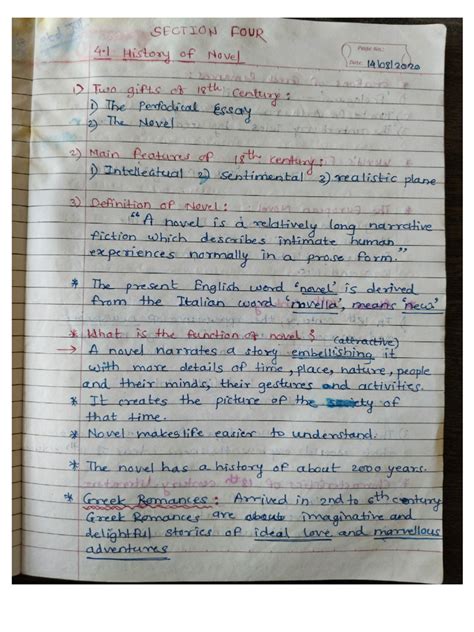 SECTION FOUR
Page No.:
4.1 History of Novel
Date: 14/08/2020
1) Two gifts of 18th Century:
1) The Periodical Essay
2) The Novel
2) Main Features of 18th century:
1) Intellectual 2) Sentimental 3) realistic plane
3) Definition of Novel:
"A novel is a relatively long narrative
fiction which describes intimate human
experiences normally in a prose form."
* The present English word 'novel' is derived
from the Italian word 'novella', means 'new'
* What is the function of novel?
(attractive)
→ A novel narrates a story embellishing it
with more details of time, place, nature, people
and their minds, their gestures and activities.
* It creates the picture of the society of
that time.
* Novel makes life easier to understand.
* The novel has a history of about 2000 years.
* Greek Romances: Arrived in 2nd to 6th century
Greek Romances are about imaginative and
delightful stories of ideal love and marvellous
adventures